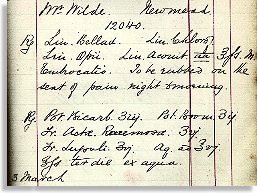 Mr Wilde. Newmead
12040.
Rj Lin. Bellad. Lin. Chlorof.
Lin. Opii. Lin. Aconit āā ʒfs. M.
Embrocatio. To be rubbed on the
seat of pain night & morning.
Rj Pot. Bicarb. ʒiij Pot. Brom. ʒij
Tr. ʒij.
Tr. ʒij. Aq. ad ʒvj
ter die ex aqua.
3 March